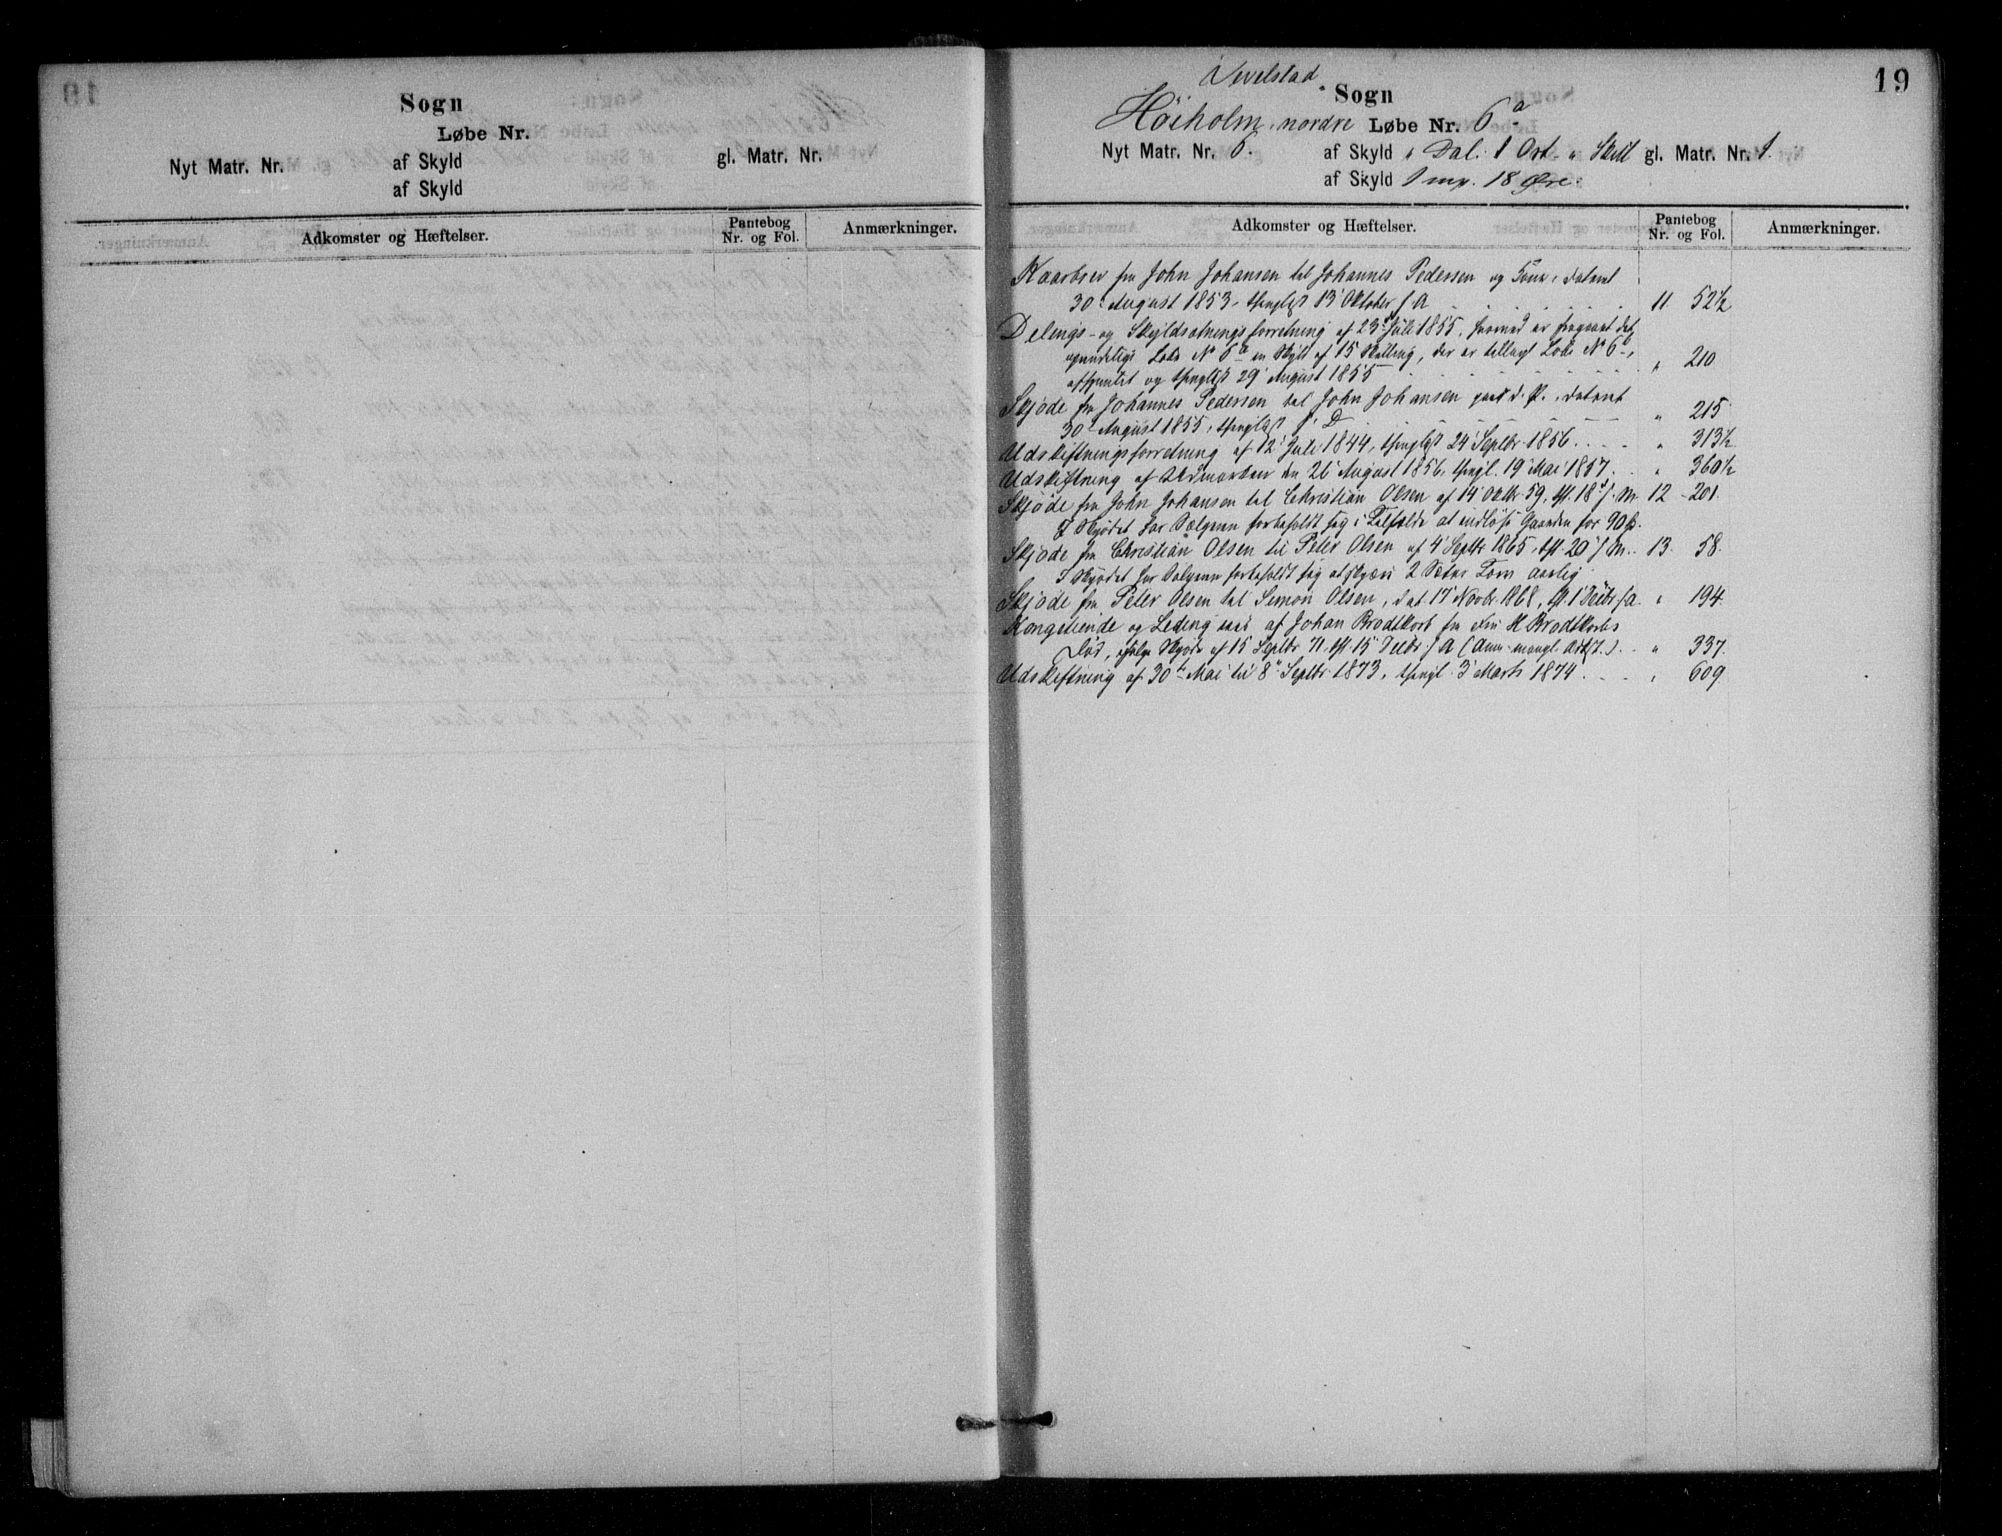 Sogn
Løbe Nr.
Nyt Matr. Nr. af Skyld gl. Matr. Nr.
af Skyld
Adkomster og Hæftelser. Pantebog Nr. og Fol. Anmærkninger.
19
Vevelstad Sogn
Høiholm, nordre Løbe Nr. 6a
Nyt Matr. Nr. 6. af Skyld " Dal. 1 Ort " Skill gl. Matr. Nr. 1.
af Skyld 1 mp. 18 Øre.
Adkomster og Hæftelser. Pantebog Nr. og Fol. Anmærkninger.
Kaarbrev fra John Johansen til Johannes Pedersen og Kone, dateret
30 August 1853, thinglyst 13 Oktober s. A 11 52½
Delings- og Skyldsætningsforretning af 23 Juli 1855, hvorved er fragaaet det
oprindelige Løbe No 6a en Skyld af 15 Skilling, der er tillagt Løbe No 6b,
afhjemlet og thinglyst 29 August 1855 " 210
Skjøde fra Johannes Pedersen til John Johansen paa d. P., dateret
30 August 1855, thinglyst s. D " 215
Udskiftningsforretning af 12 Juli 1844, thinglyst 24 Septbr 1856 " 313½
Udskiftning af Udmarken den 26 August 1856, thingl. 19 Mai 1857 " 360½
Skjøde fra John Johansen til Christian Olsen af 14 Oktbr 59, tht 18 s. M 12 201.
I Skjødet har Sælgeren forbeholdt sig i Tilfælde at indløse Gaarden for 90
Skjøde fra Christian Olsen til Peter Olsen af 4 Septbr 1865, tht 20 s. M. 13. 58.
I Skjødet har Sælgeren forbeholdt sig at skjære 2 aarlig
Skjøde fra Peter Olsen til Simon Olsen, dat. 17 Novbr 1868, tht. 1 Decbr s. A. " 194.
Kongetiende og Leding af Johan Brodtkorb fra H Brodtkorbs
Død, ifølge Skjøde af 15 Septbr 71, tht 15 Decbr s. A (Anm. mangl. ) " 337.
Udskiftning af 30te Mai til 8 Septbr 1873, thingl. 3 Marts 1874 " 609.